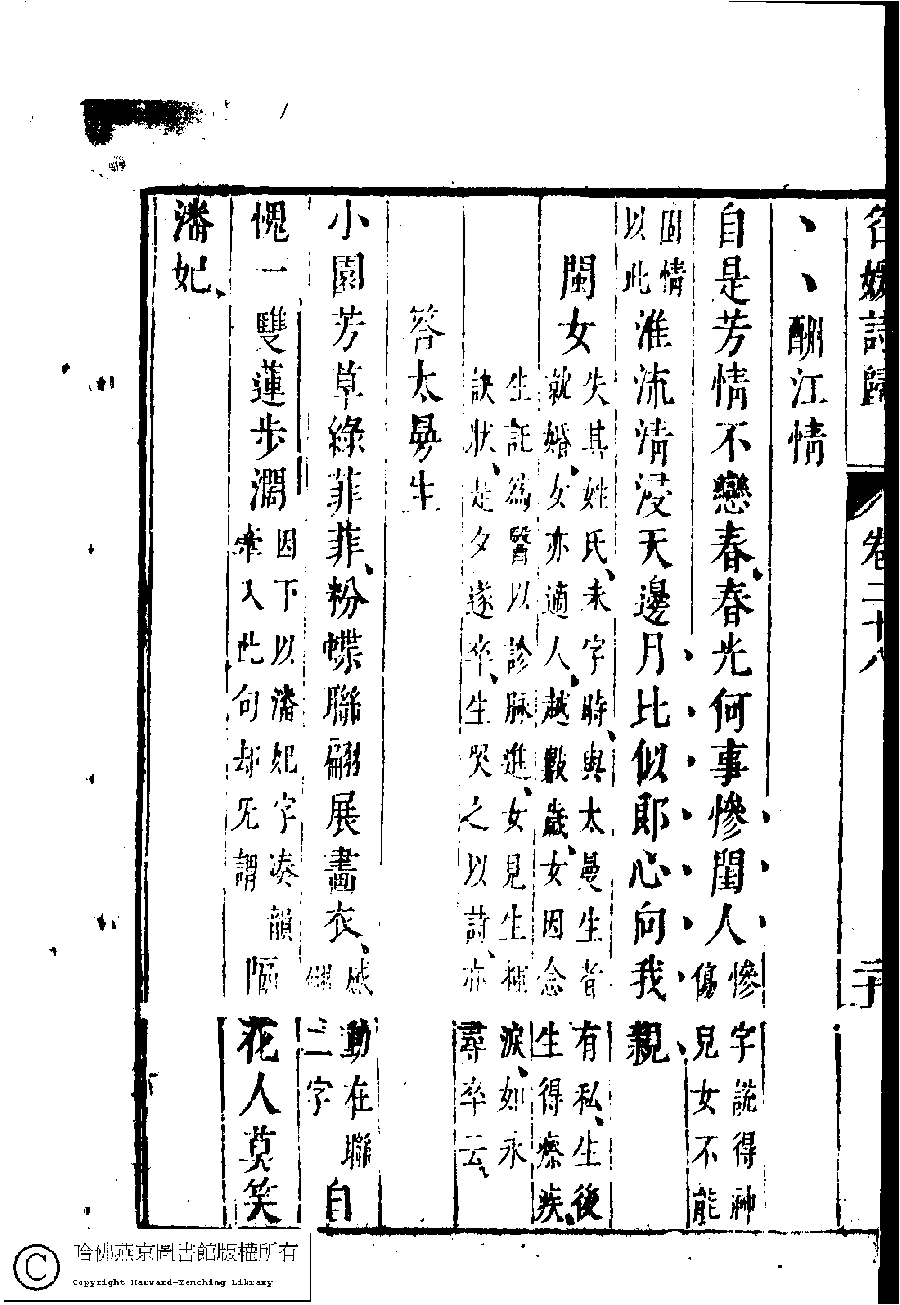 名媛詩歸 卷二十八 二十
、、酬江情
自是芳情不戀春、春光何事慘閨人慘字說得神傷兒女不能
固情以此淮流清浸天邊月比似郎心向我親、
閩女
失其姓氏、未字時、與太曼生者有私、生後
就婚、女亦適人、越數歲、女因念生得瘵疾、
生託為醫以診脉進、女見生極淚、如永
訣狀、是夕遂卒、生哭之以詩、亦尋卒云、
答太曼生
小園芳草綠菲菲、粉蝶聯翩展畫衣、感動在聯翩二字自
愧一雙蓮步濶因下以潘妃字湊韻牽入此句却无謂隔花人莫笑
潘妃、
哈佛燕京圖書館版權所有
Copyright Harvard-Yenching Library